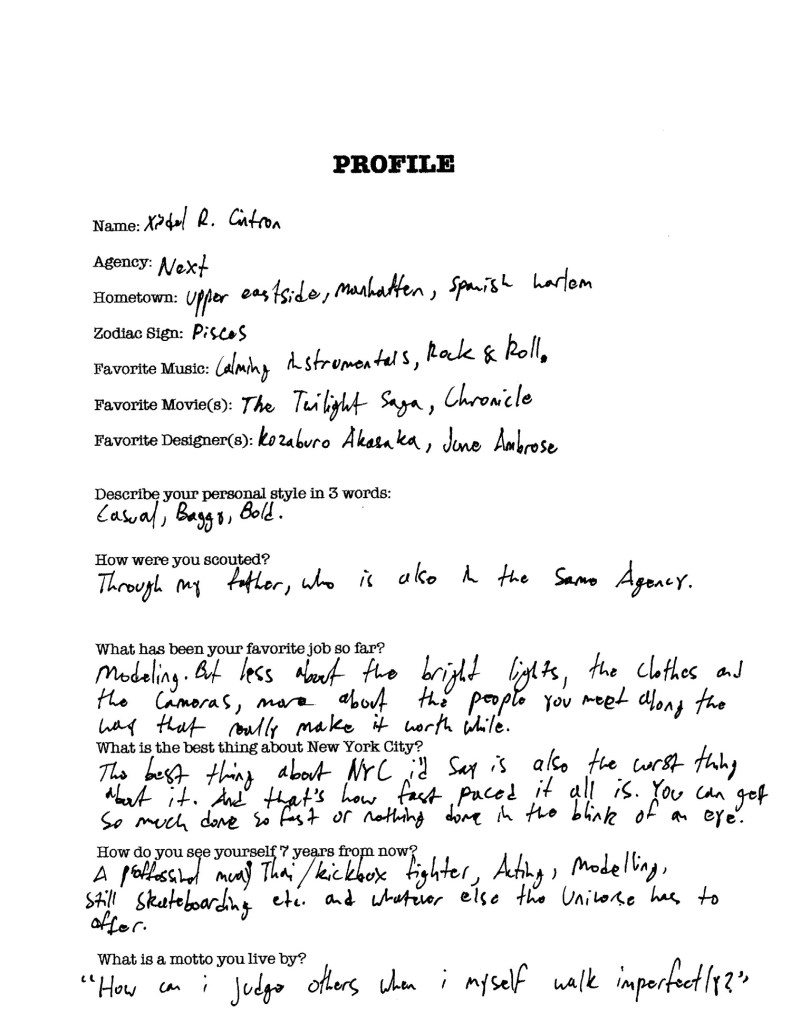 PROFILE
Name: R. Cintron
Agency: Next
Hometown: Upper eastside, Manhatten, Spanish harlem
Zodiac Sign: Pisces
Favorite Music: Calming instrumentals, Rock & Roll.
Favorite Movie(s): The Twilight Saga, Chronicle
Favorite Designer(s): Kozaburo Akasaka, June Ambrose
Describe your personal style in 3 words:
Casual, Baggy, Bold.
How were you scouted?
Through my father, who is also in the same Agency.
What has been your favorite job so far?
Modeling. But less about the bright lights, the clothes and
the cameras, more about the people you meet along the
way that really make it worth while.
What is the best thing about New York City?
The best thing about NYC i'd say is also the worst thing
about it. And that's how fast paced it all is. You can get
so much done so fast or nothing done in the blink of an eye.
How do you see yourself 7 years from now?
A muay Thai/kickbox fighter, Acting, Modelling,
still skateboarding etc. and whatever else the Universe has to
offer.
What is a motto you live by?
"How can i judge others when i myself walk imperfectly?"